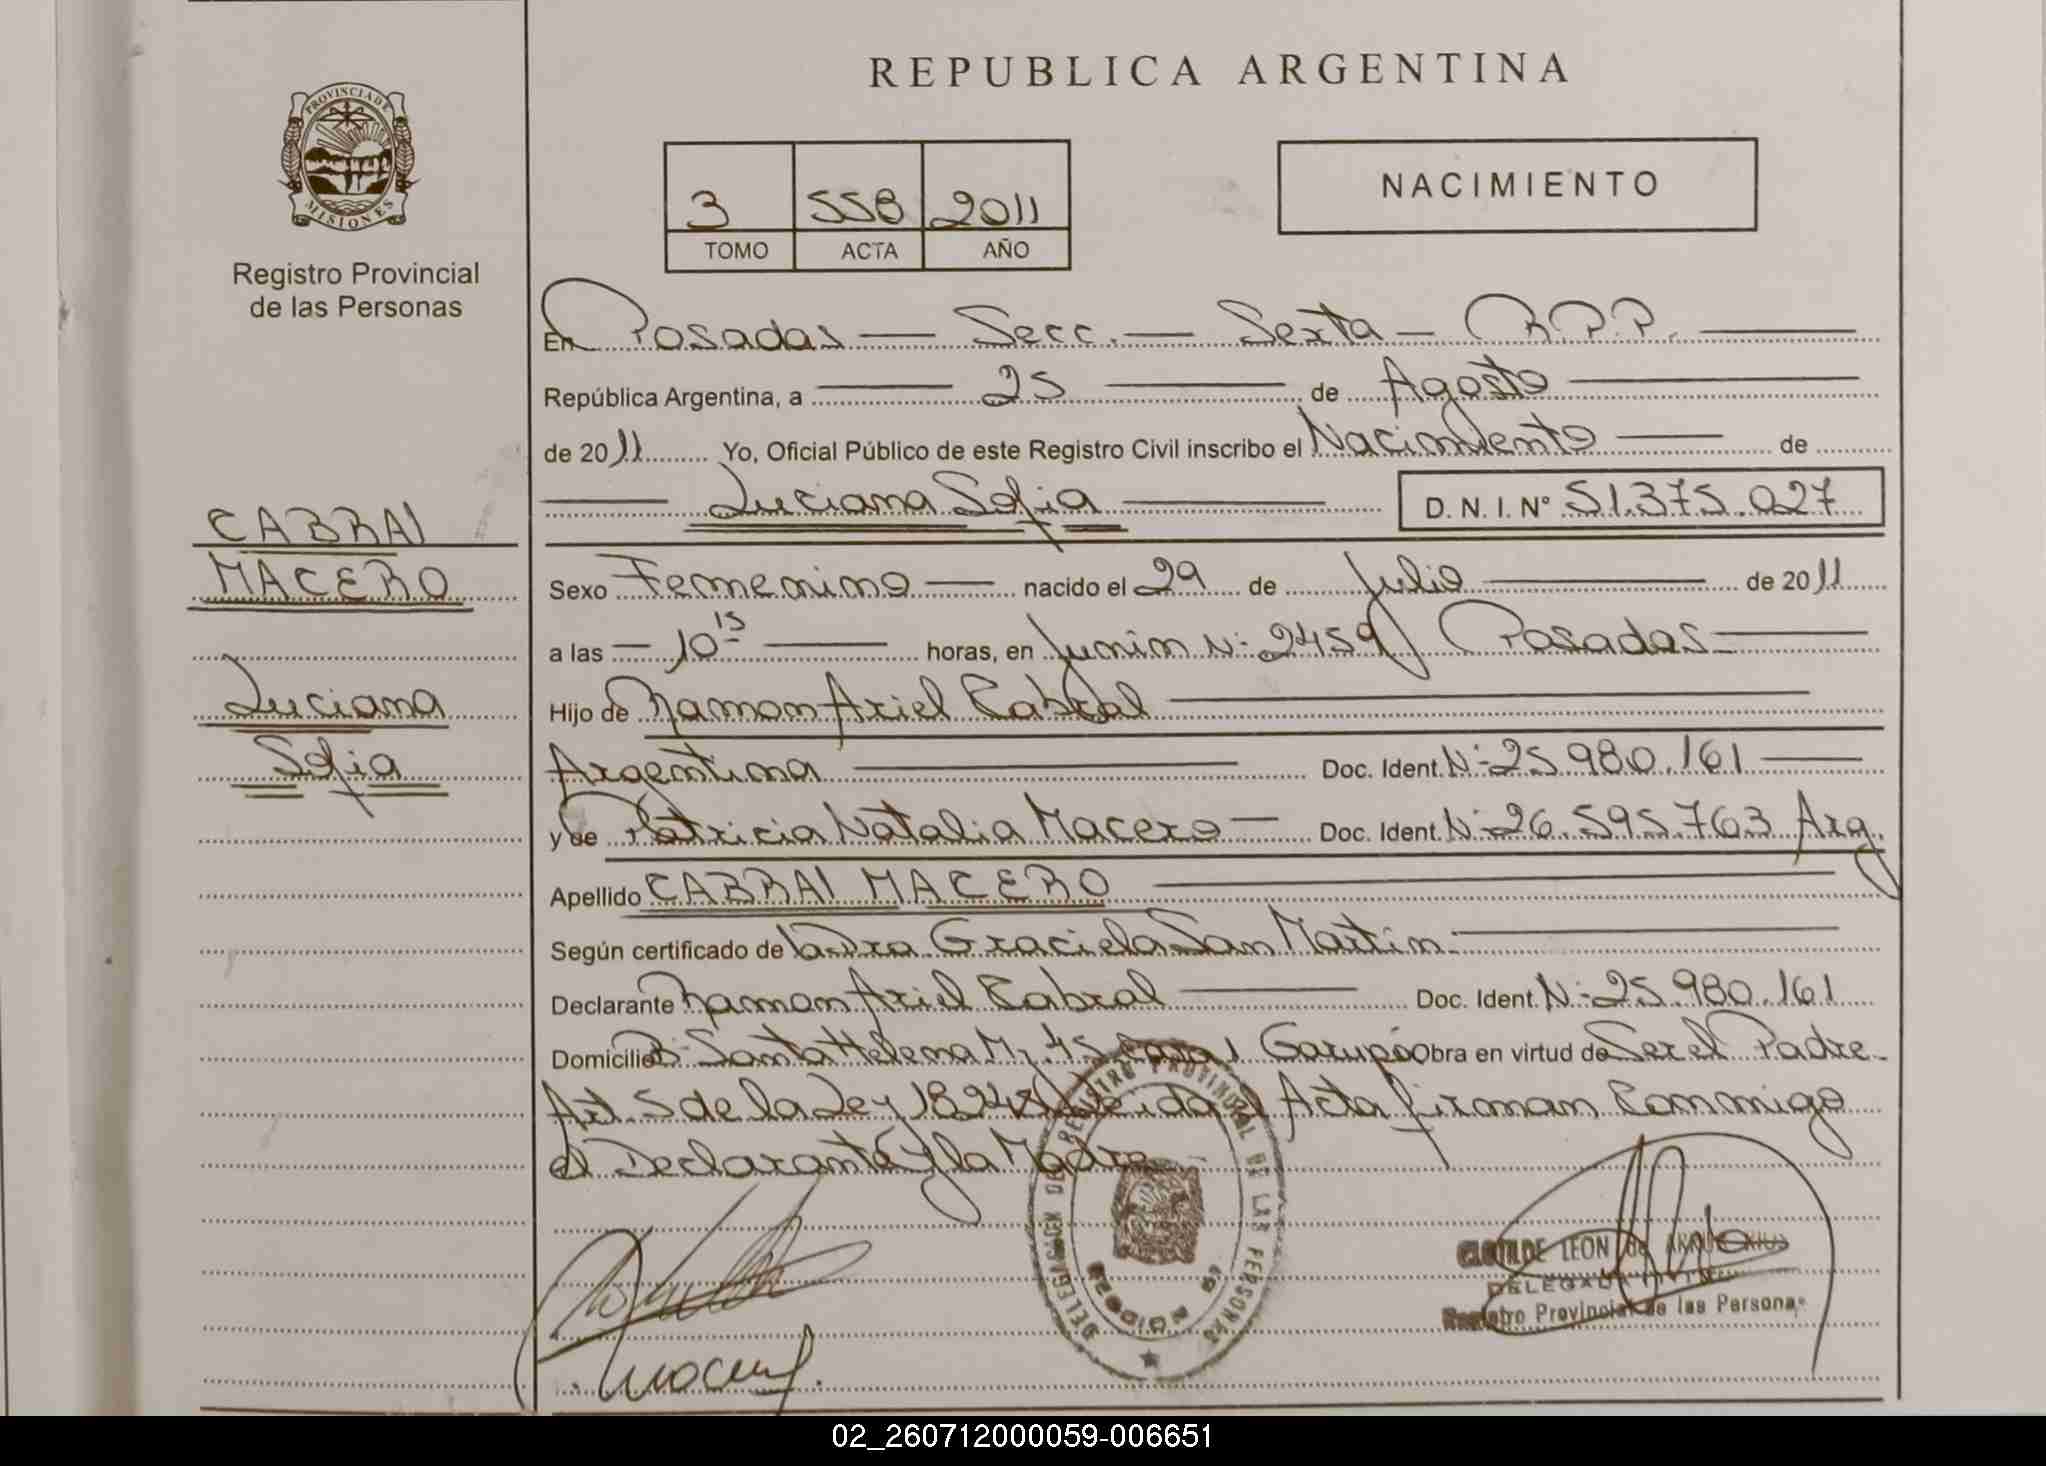 REPUBLICA ARGENTINA
PROVINCIA DE
MISIONES
Registro Provincial
de las Personas
3 558 2011
TOMO ACTA AÑO
NACIMIENTO
En Posadas — Secc. — Sexta — R.P.P.
República Argentina, a 25 de Agosto
de 2011 Yo, Oficial Público de este Registro Civil inscribo el Nacimiento de
Luciana Sofia D. N. I. Nº 51.375.027
CABRAl
MACERO
Luciana
Sofia
Sexo Femenino nacido el 29 de Julio de 2011
a las 10 15 horas, en Junin Nº 2459 Posadas
Hijo de Ramon Ariel Cabral
Argentina Doc. Ident. Nº 25.980.161
y de Patricia Natalia Macero Doc. Ident. Nº 26.595.763 Arg.
Apellido CABRAl MACERO
Según certificado de la Dra Graciela San Martin
Declarante Ramon Ariel Cabral Doc. Ident. Nº 25.980.161
Domicilio Bº Santa Helena Mz 45 Casa 1 Garupá Obra en virtud de Ser el Padre
Art. 5 de la Ley 18248 Leida el Acta firman Conmigo
el Declarante y la Madre
DELEGACION DEL REGISTRO PROVINCIAL DE LAS PERSONAS
SECCION 6ª
CLOTILDE LEON de
DELEGADA
Registro Provincial de las Personas
02_260712000059-006651